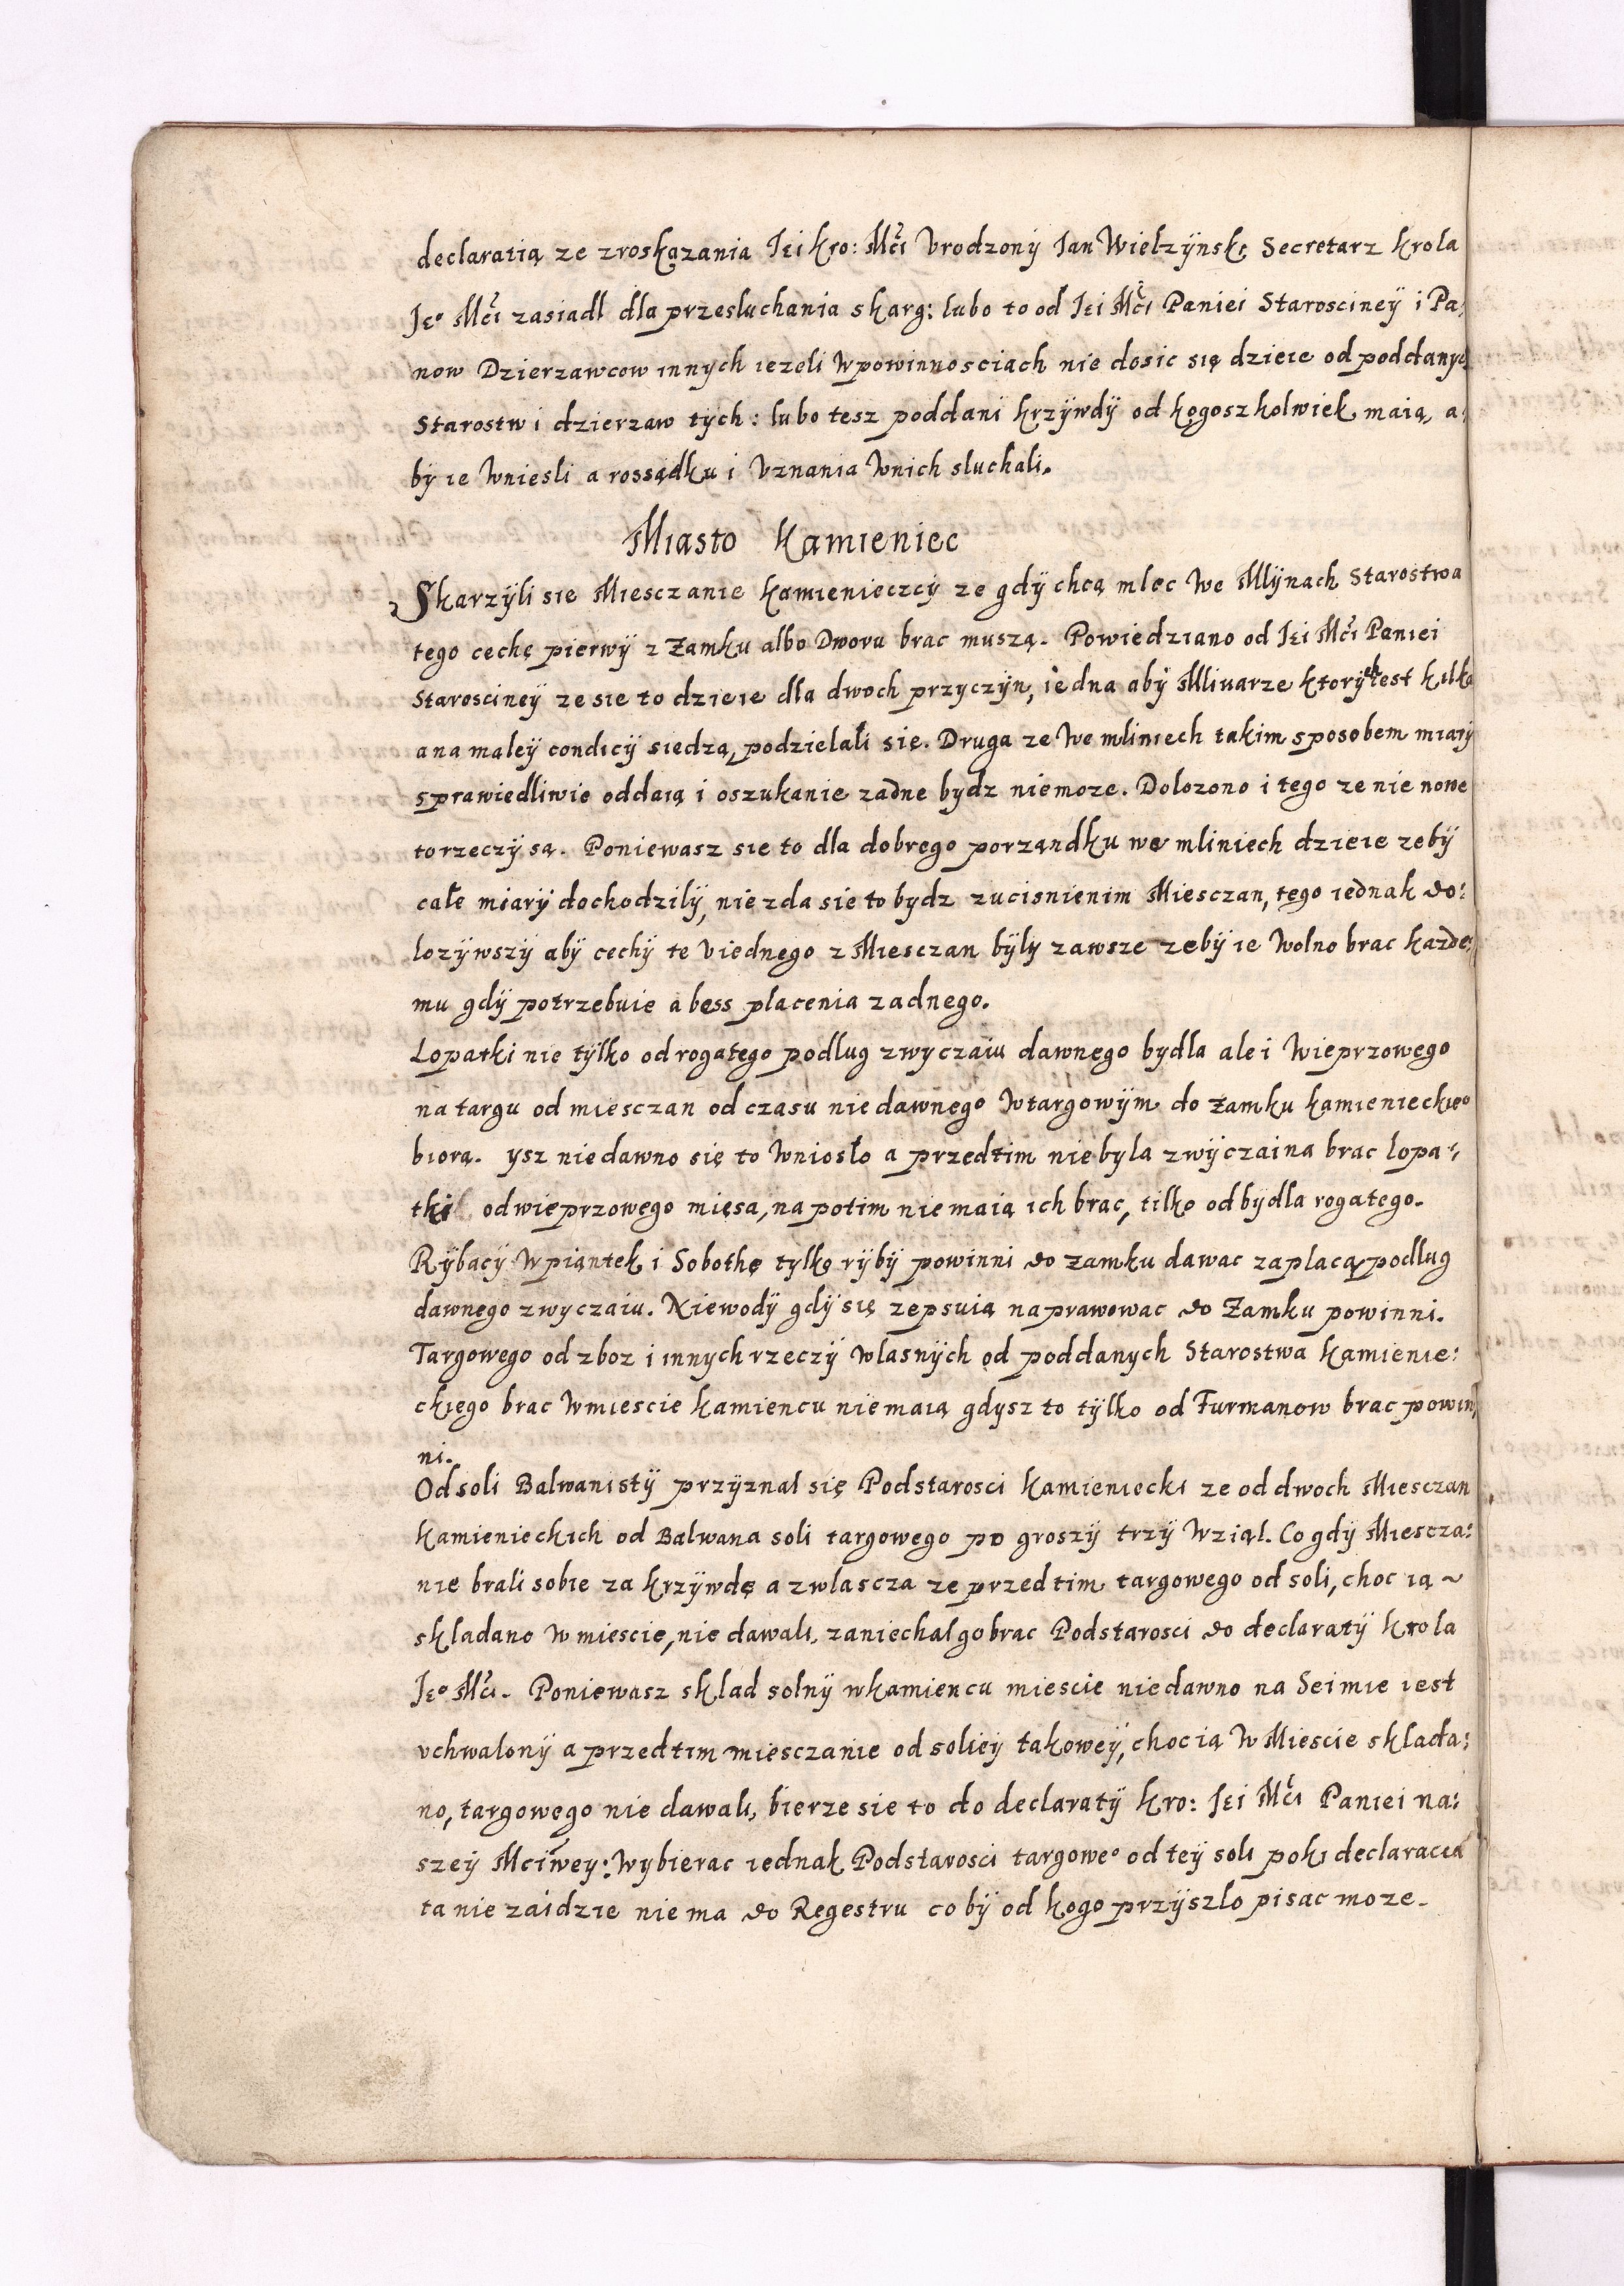 declaratią ze zroskązania Jei kro: Mći Vrodzonÿ Jan Wielzÿnski Secretarz krola
Je° Mći zasiadl dla przesluchania skarg: lubo to od Jei Mći Paniei Starosciney i Pa:
now Dzierzawcow innych iezeli Wpowinnosciach nie dosic się dzieie od poddanych
Starostw i dzierzaw tych: lubo tesz poddani krzÿwdÿ od kogoszkolwiek maią, a:
bÿ ie Wniesli a rossądku i Vznania Wnich sluchali.
Miasto Kamieniec
Skarzÿli sie Miesczanie kamienieczcÿ ze gdÿ chcą mlec We Mlÿnach Starostwa
tego cechę pierwÿ z Zamku albo Dworu brac muszą. Powiedziano od Jei Mći Paniei
Starosciney ze sie to dzieie dla dwoch przyczÿn, iedna abÿ Mlinarze ktorÿch iest kilka
a na maleÿ condicÿ siedzą, podzielali się. Druga ze We mliniech takim sposobem miarÿ
sprawiedliwie oddaią i oszukanie zadne bydz niemoze. Dolozono i tego ze nie nowe
to rzeczÿ są. Poniewasz sie to dla dobrego porząndku we mliniech dzieie zebÿ
cale miarÿ dochodzilÿ, nie zda sie to bydz zucisnienim Miesczan, tego iednak do:
lozÿwszÿ abÿ cechÿ te Viednego z Miesczan bÿlÿ zawsze zebÿ ie Wolno brac kazde:
mu gdÿ potrzebuie a bess placenia zadnego.
Lopatki nie tÿlko od rogatego podlug zwyczaiu dawnego bydla ale i Wieprzowego
na targu od miesczan od czasu niedawnego Wtargowÿm do Zamku kamienieckie°
biorą. ysz niedawno się to Wnioslo a przedtim niebyla zwÿczaina brac lopa:
tki od wieprzowego mięsa, na potim niemaią ich brac, tilko od bydla rogatego.
Rÿbacÿ Wpiąntek i Sobothę tylko rÿbÿ powinni do zamku dawac zaplacą podlug
dawnego zwyczaiu. Niewodÿ gdÿ się zepsuią naprawowac do Zamku powinni.
Targowego od zboz i innych rzeczÿ Wlasnÿch od poddanych Starostwa Kamienie:
ckiego brac Wmiescie kamiencu niemaią gdysz to tÿlko od Furmanow brac powin
ni.
Od soli Balwanistÿ przÿznal się Podstarosci kamieniecki ze od dwoch Miesczan
kamienieckich od Balwana soli targowego po groszÿ trzÿ Wziąl. Co gdÿ Miescza:
nie brali sobie za krzÿwdę a zwlascza ze przedtim targowego od soli, choc ią ~
skladano W miescie, nie dawali, zaniechal go brac Podstarosci do declaratÿ krola
Je° Mći. Poniewasz sklad solnÿ wkamiencu miescie niedawno na Seimie iest
vchwalonÿ a przedtim miesczanie od soliey takoweÿ, choc ią W Miescie sklada:
no, targowego nie dawali, bierze sie to do declaratÿ kro: Jei Mći Paniei na:
szeÿ Mciwey: Wybierac iednak Podstarosci targowe° od teÿ soli poki declaracia
ta nie zaidzie niema do Regestru co bÿ od kogo przÿszlo pisac moze.